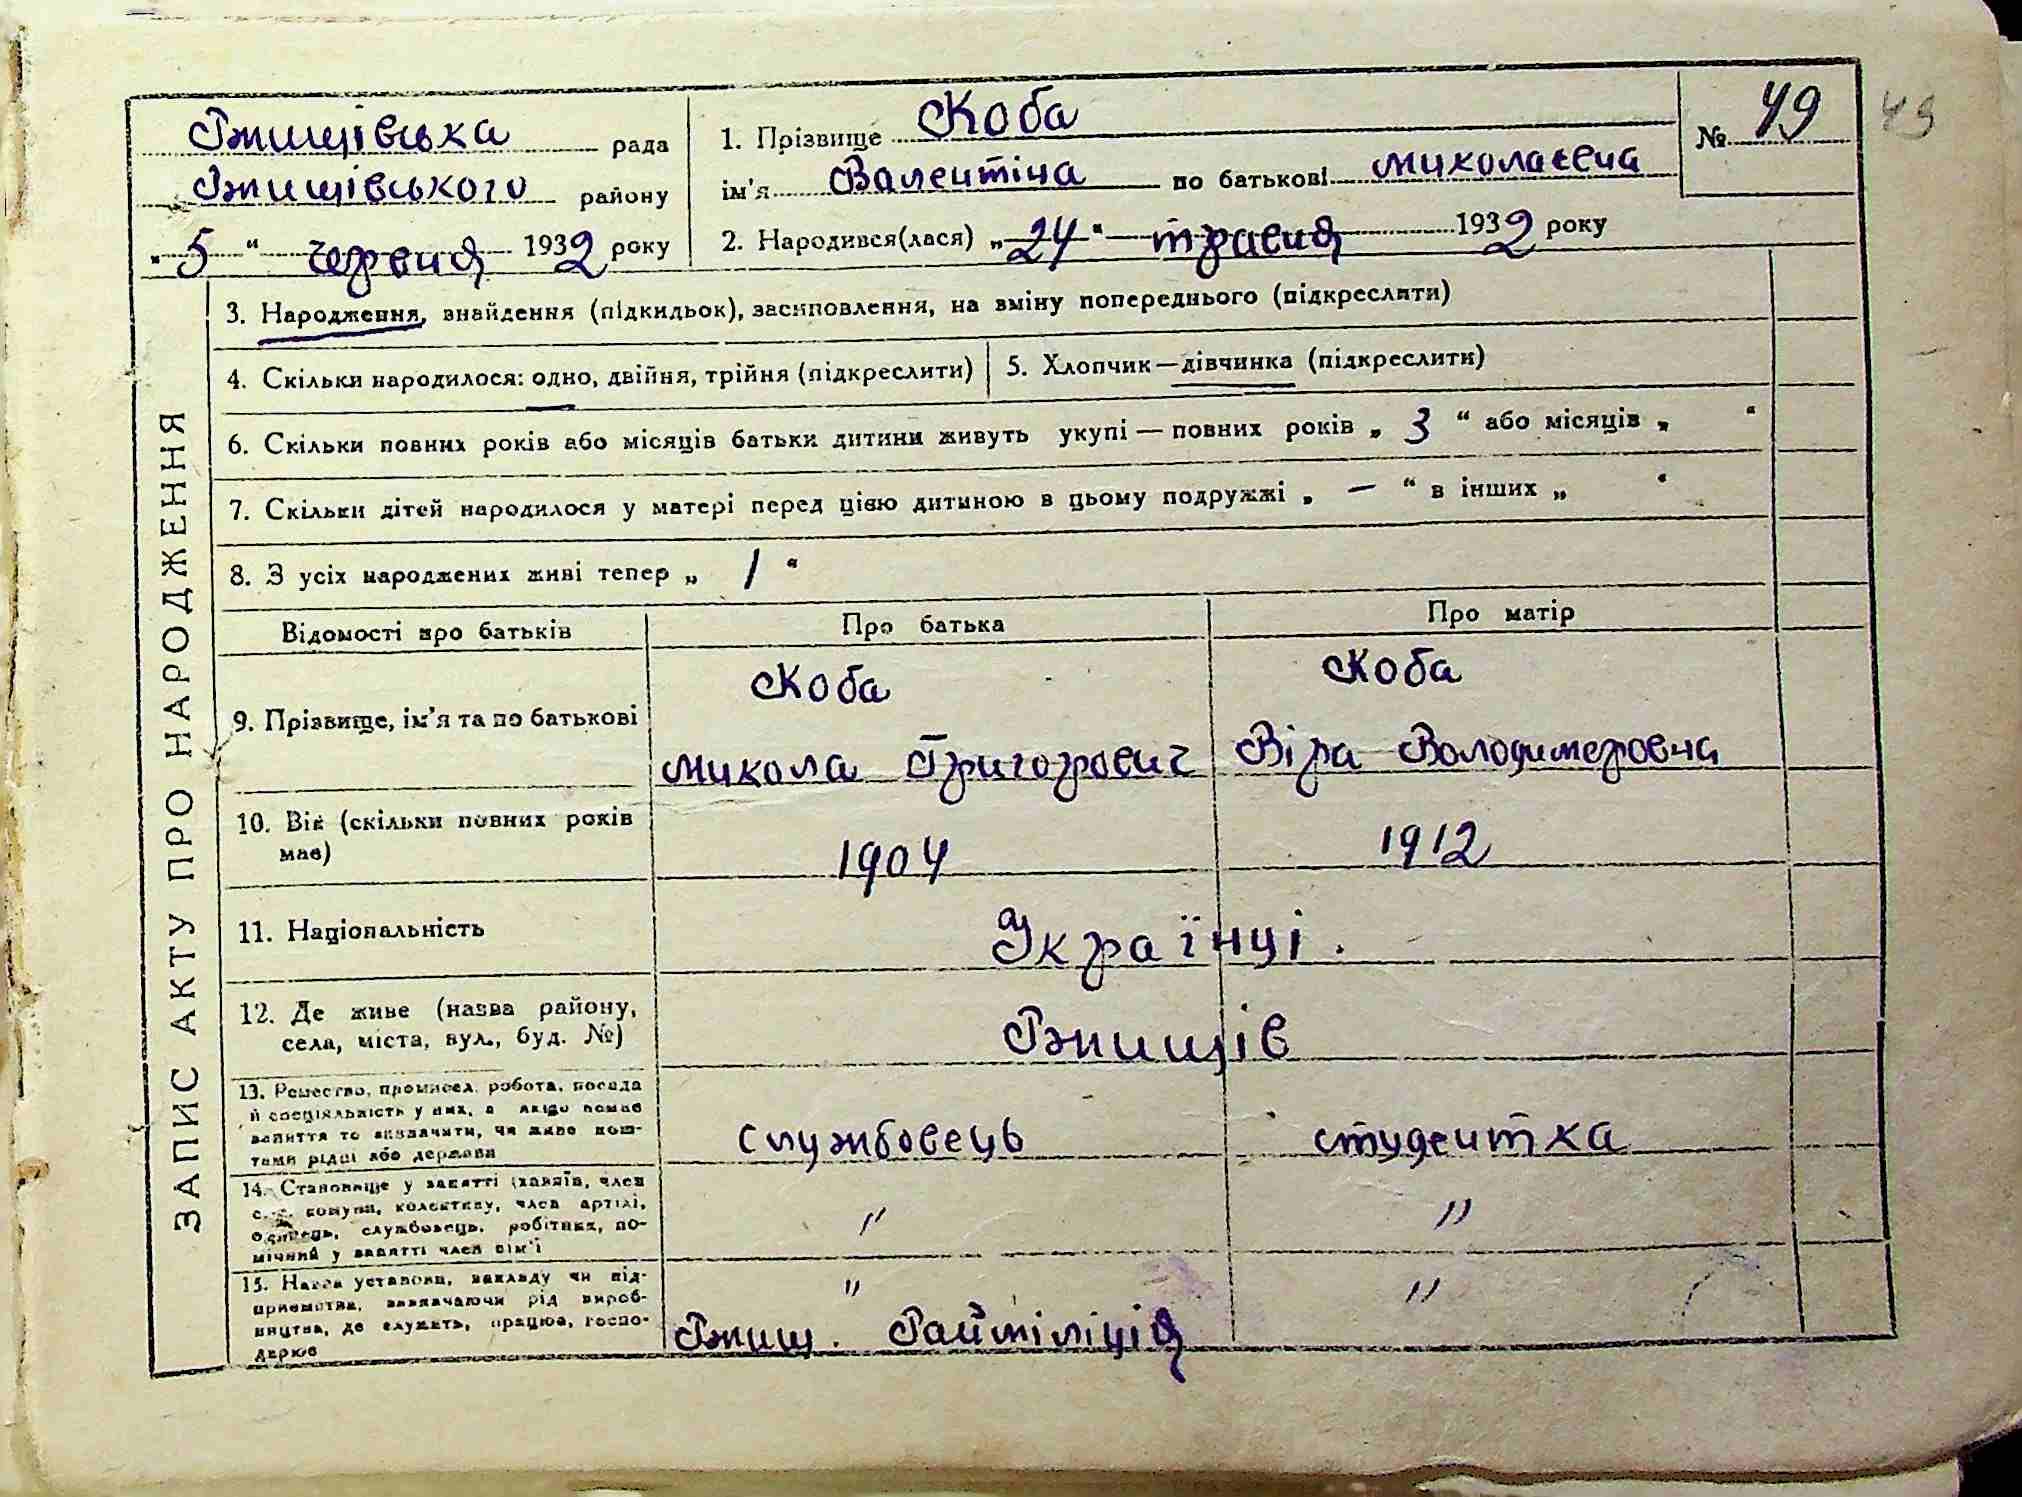 Ржищівська рада
Ржищівського району
„5“ червня 1932 року
1. Прізвище Коба
ім'я Валентіна по батькові миколаєвна
2. Народився(лася) „24“ травня 1932 року
№ 49
49
ЗАПИС АКТУ ПРО НАРОДЖЕННЯ
3. Народження, знайдення (підкидьок), засиновлення, на зміну попереднього (підкреслити)
4. Скільки народилося: одно, двійня, трійня (підкреслити)
5. Хлопчик — дівчинка (підкреслити)
6. Скільки повних років або місяців батьки дитини живуть укупі — повних років „ 3 “ або місяців „ “
7. Скільки дітей народилося у матері перед цією дитиною в цьому подружжі „ — “ в інших „ “
8. З усіх народжених живі тепер „ 1 “
Відомості про батьків Про батька Про матір
9. Прізвище, ім'я та по батькові
Коба Коба
микола Григорович Віра Володимеровна
10. Вік (скільки повних років
має)
1904 1912
11. Національність
Українці.
12. Де живе (назва району,
села, міста, вул., буд. №)
Ржищів
13. Ремество, промисел, робота, посада
й спеціяльність у них, а якщо немає
заняття то визначити, чи живе кош-
тами рідні або держави
службовець студентка
14. Становище у занятті (хазяїн, член
комуни, колективу, член артілі,
службовець, робітник, по-
мічний у занятті член сім'ї
" "
15. Назва установи, закладу чи під-
приємства, зазначаючи рід вироб-
ництва, де служить, працює, госпо-
дарює
" "
Ржищ. Райміліція